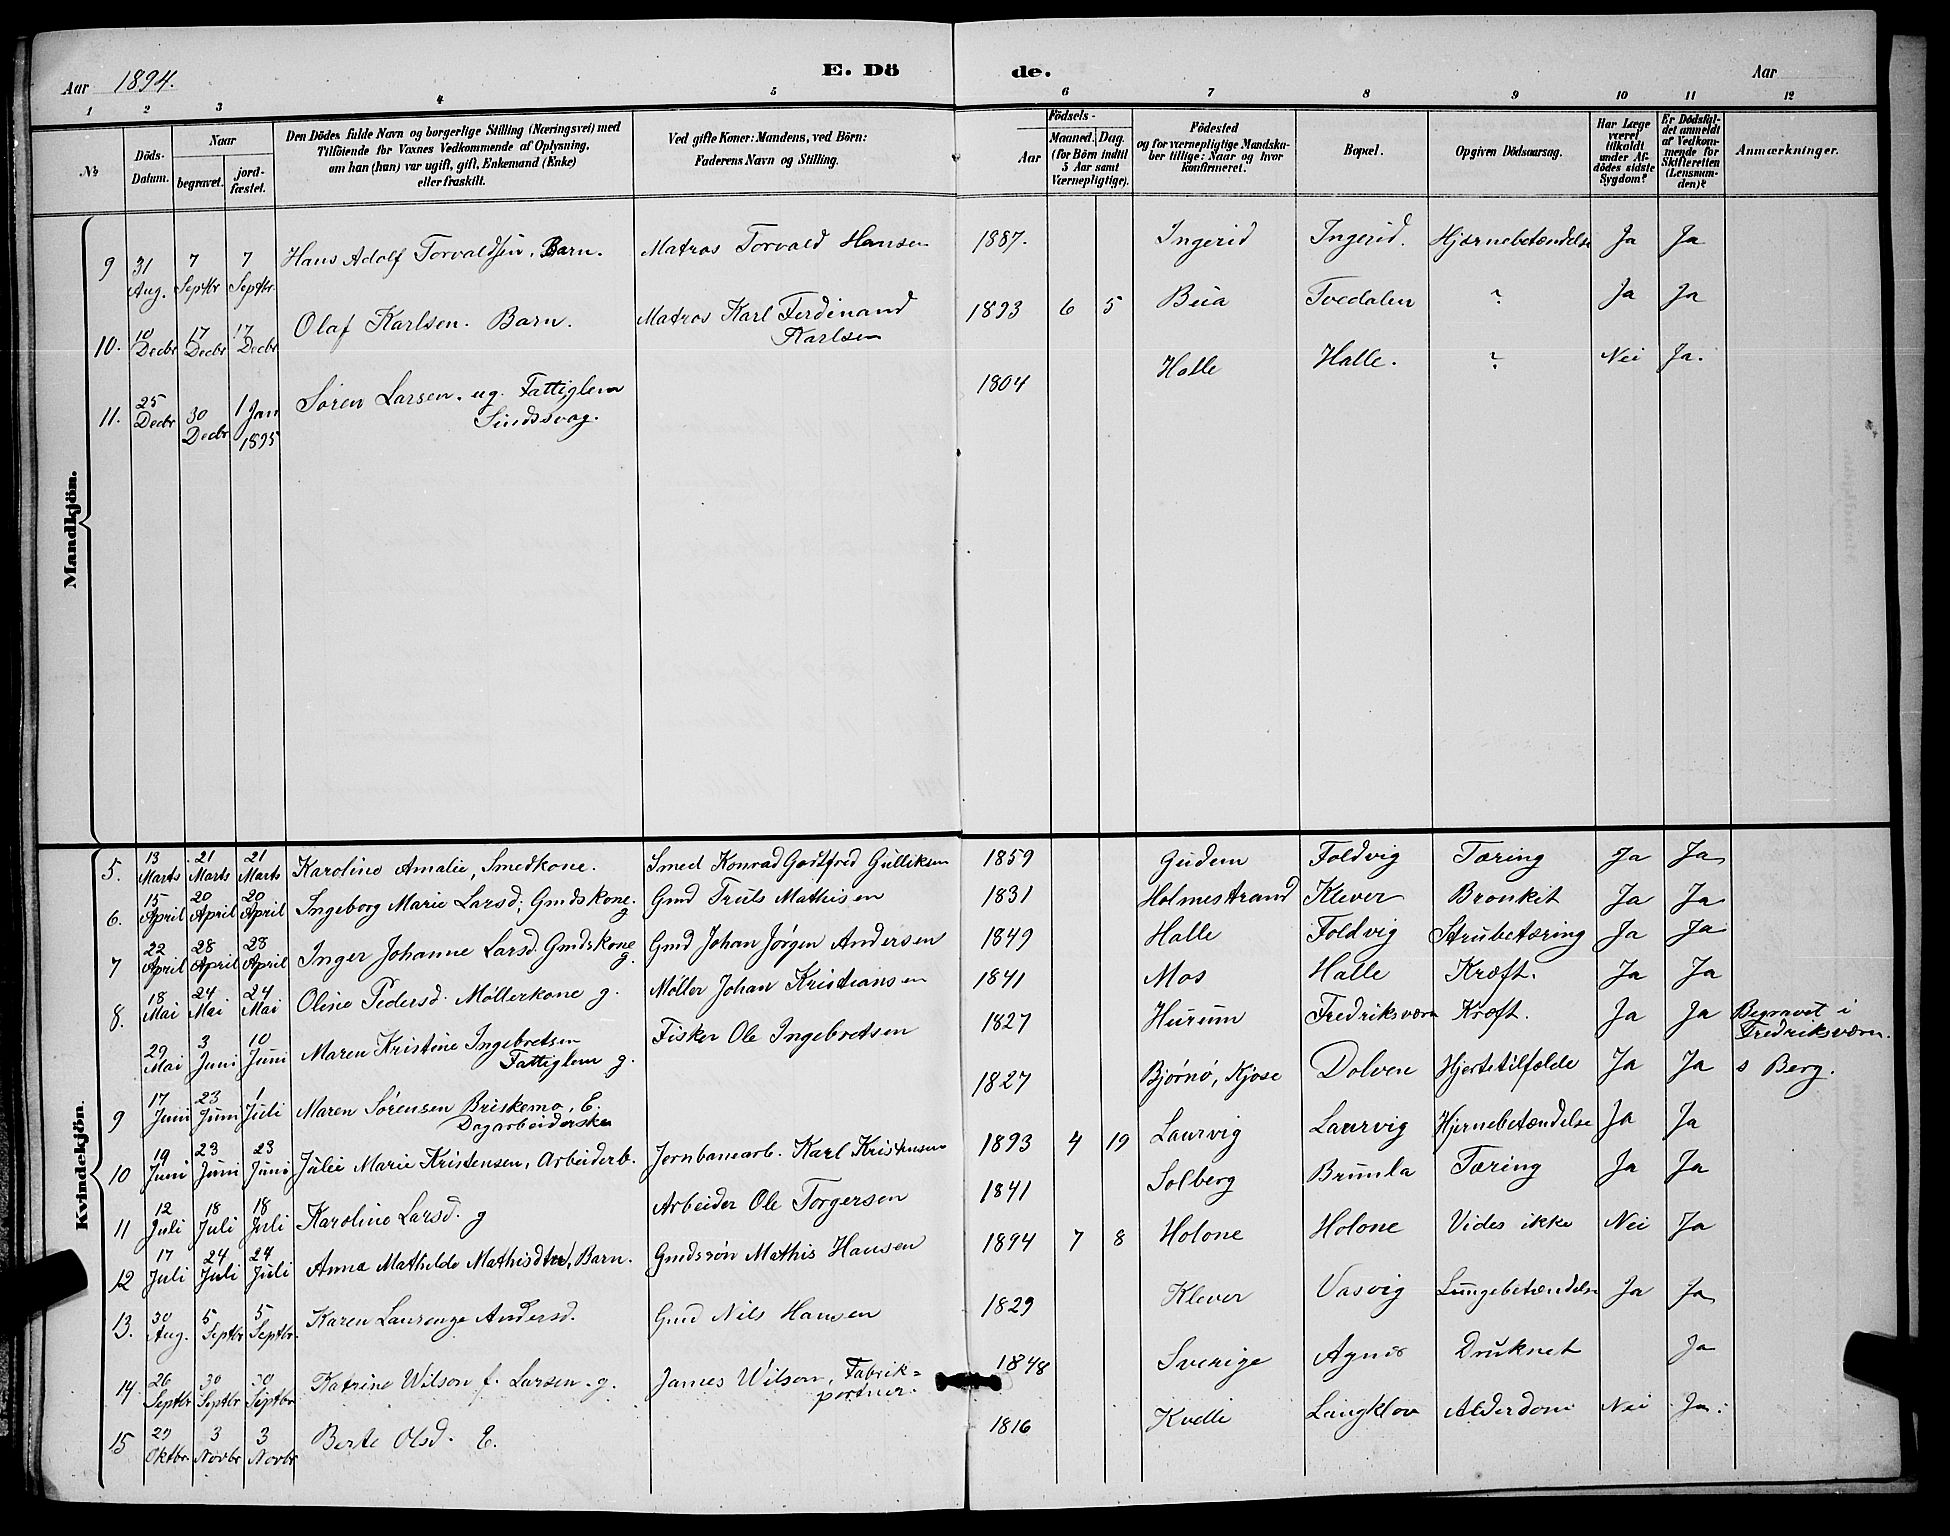 Aar 1894.
E. Dö de.
Aar
1 2 3 4 5 6 7 8 9 10 11 12
№
Döds-Datum.
Naar
begravet.
jord-fæstet.
Den Dödes fulde Navn og borgerlige Stilling (Næringsvei) med
Tilföiende for Voxnes Vedkommende af Oplysning,
om han (hun) var ugift, gift, Enkemand (Enke)
eller fraskilt.
Ved gifte Koner: Mandens, ved Börn:
Faderens Navn og Stilling.
Födsels-
Aar
Maaned. Dag.
(for Börn indtil
5 Aar samt
Værnepligtige).
Födested
og for værnepligtige Mandska-
ber tillige: Naar og hvor
konfirmeret.
Bopæl.
Opgiven Dödsaarsag.
Har Læge
været
tilkaldt
under Af-
dödes sidste
Sygdom?
Er Dödsfal-
det anmeldt
af Vedkom-
mende for
Skifteretten
(Lensman-
den)?
Anmærkninger.
Mandkjön.
9 31 Aug. 7 Septbr 7 Septbr. Hans Adolf Torvaldsen, Barn. Matros Torvald Hansen 1887. Ingerid Ingerid. Hjærnebetændelse Ja Ja
10. 10 Decbr 17 Decbr 17 Decbr Olaf Karlsen. Barn. Matros Karl Ferdinand Karlsen 1893 6 5 Bua Tvedalen ? Ja Ja
11. 25 Decbr 30 Decbr 1 Jan 1895 Søren Larsen. ug. Fattiglem Sindssvag. 1804 Halle Halle. ? Nei Ja.
Kvindekjön.
5. 13 Marts 21 Marts 21 Marts Karoline Amalie, Smedkone. Smed Konrad Godtfred Gulliksen 1859 Gudem Foldvig Tæring Ja Ja
6. 15 April 20 April 20 April Ingeborg Marie Larsd, Gmdskone g Gmd Truls Mathisen 1831 Holmestrand Klever Bronkit Ja Ja
7 22 April 28 April 28 April Inger Johanne Larsd. Gmdskone g. Gmd Johan Jørgen Andersen 1849 Halle Foldvig Strubetæring Ja Ja
8. 18 Mai 24 Mai 24 Mai Oline Pedersd. Møllerkone g. Møller Johan Kristiansen 1841 Mos Halle Kræft. Ja Ja
29 Mai 3 Juni 10 Juni Maren Kristine Ingebretsen Fattiglem g. Fisker Ole Ingebretsen 1827 Hurum Fredriksværn Kræft. Ja Ja Begravet i Fredriksværn.
9 17 Juni 23 Juni 1 Juli Maren Sørensen Briskemo, E. Dagarbeiderske 1827 Bjørnø, Kjose Dolven Hjertetilfælde Ja Ja s Berg.
10 19 Juni 23 Juni 23 Juni Julie Marie Kristensen, Arbeiderb. Jernbanearb. Karl Kristensen 1893 4 19 Laurvig Laurvig Hjernebetændelse Ja Ja
11 12 Juli 18 Juli 18 Juli Karoline Larsd. g Arbeider Ole Torgersen 1841 Solberg Brumla Tæring Ja Ja
12 17 Juli 24 Juli 24 Juli Anna Mathilde Mathisdtr, Barn. Gmdssøn Mathis Hansen 1894 7 8 Holone Holone Vides ikke Nei Ja
13. 30 Aug. 5 Septbr 5 Septbr. Karen Laurenze Andersd. Gmd Nils Hansen 1829 Klever Vasvig Lungebetændelse Ja Ja
14 26 Septbr 30 Septbr 30 Septbr Katrine Wilson f. Larsen. g. James Wilson, Fabrik=portner. 1848 Sverige Agnes Druknet Ja
15 29 Oktbr 3 Novbr 3 Novbr Berte Olsd. E. 1816 Kvelle Langklov Alderdom Nei Ja.